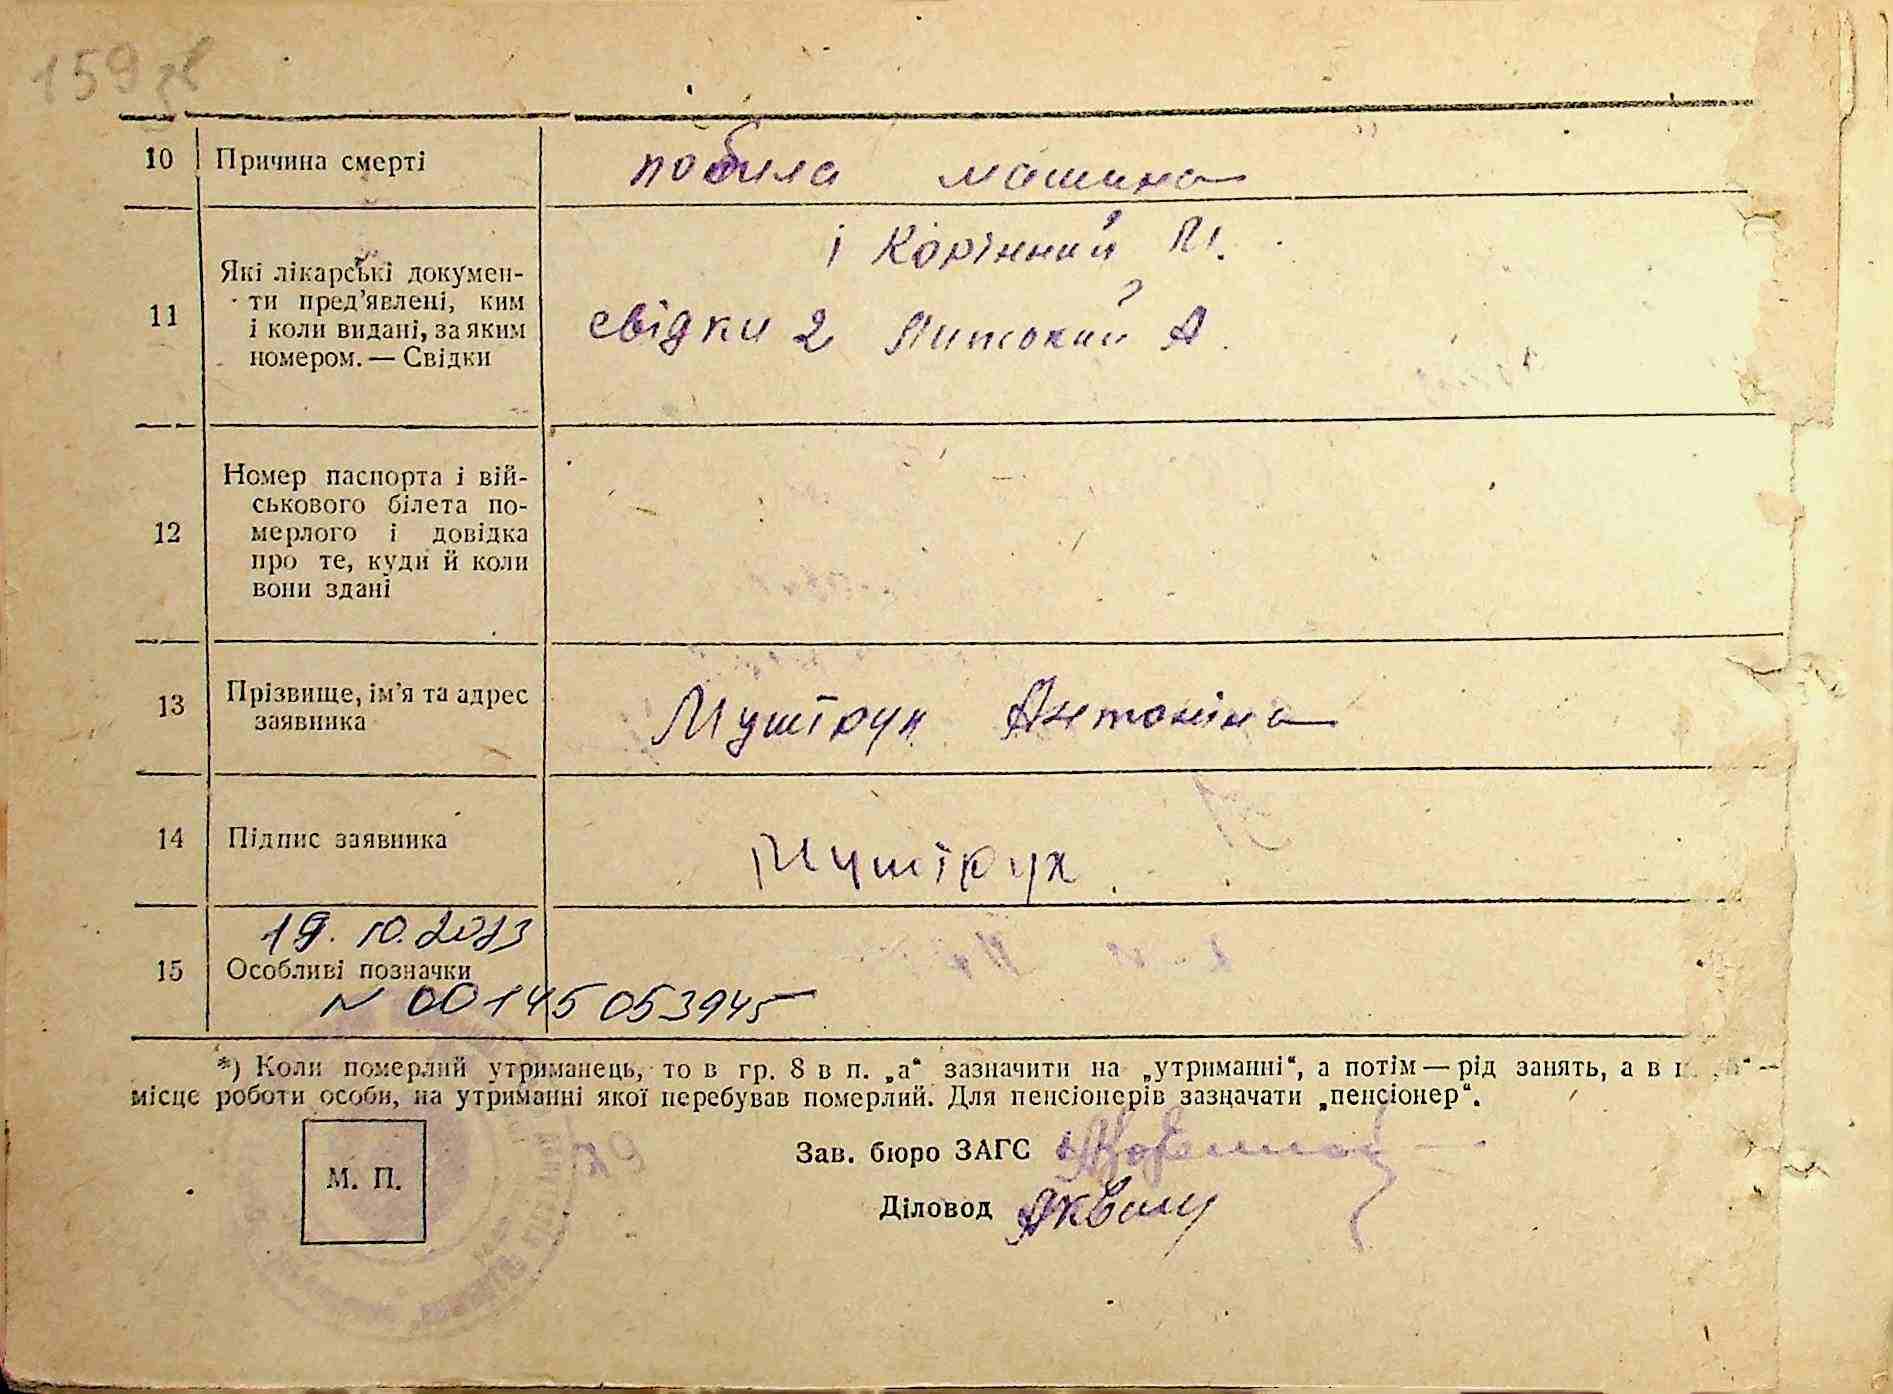 159 зв
10 Причина смерті побила машина
11 Які лікарські докумен-
ти пред’явлені, ким
і коли видані, за яким
номером. — Свідки
і Корінний М.
свідки 2 Литокий А.
12 Номер паспорта і вій-
ськового білета по-
мерлого і довідка
про те, куди й коли
вони здані
13 Прізвище, ім’я та адрес
заявника
Муштрук Антоніна
14 Підпис заявника Муштрук
19.10.2023
15 Особливі позначки
N 00145053945
*) Коли померлий утриманець, то в гр. 8 в п. „а“ зазначити на „утриманні“, а потім — рід занять, а в п.
місце роботи особи, на утриманні якої перебував померлий. Для пенсіонерів зазначати „пенсіонер“.
М. П.
Зав. бюро ЗАГС
Діловод